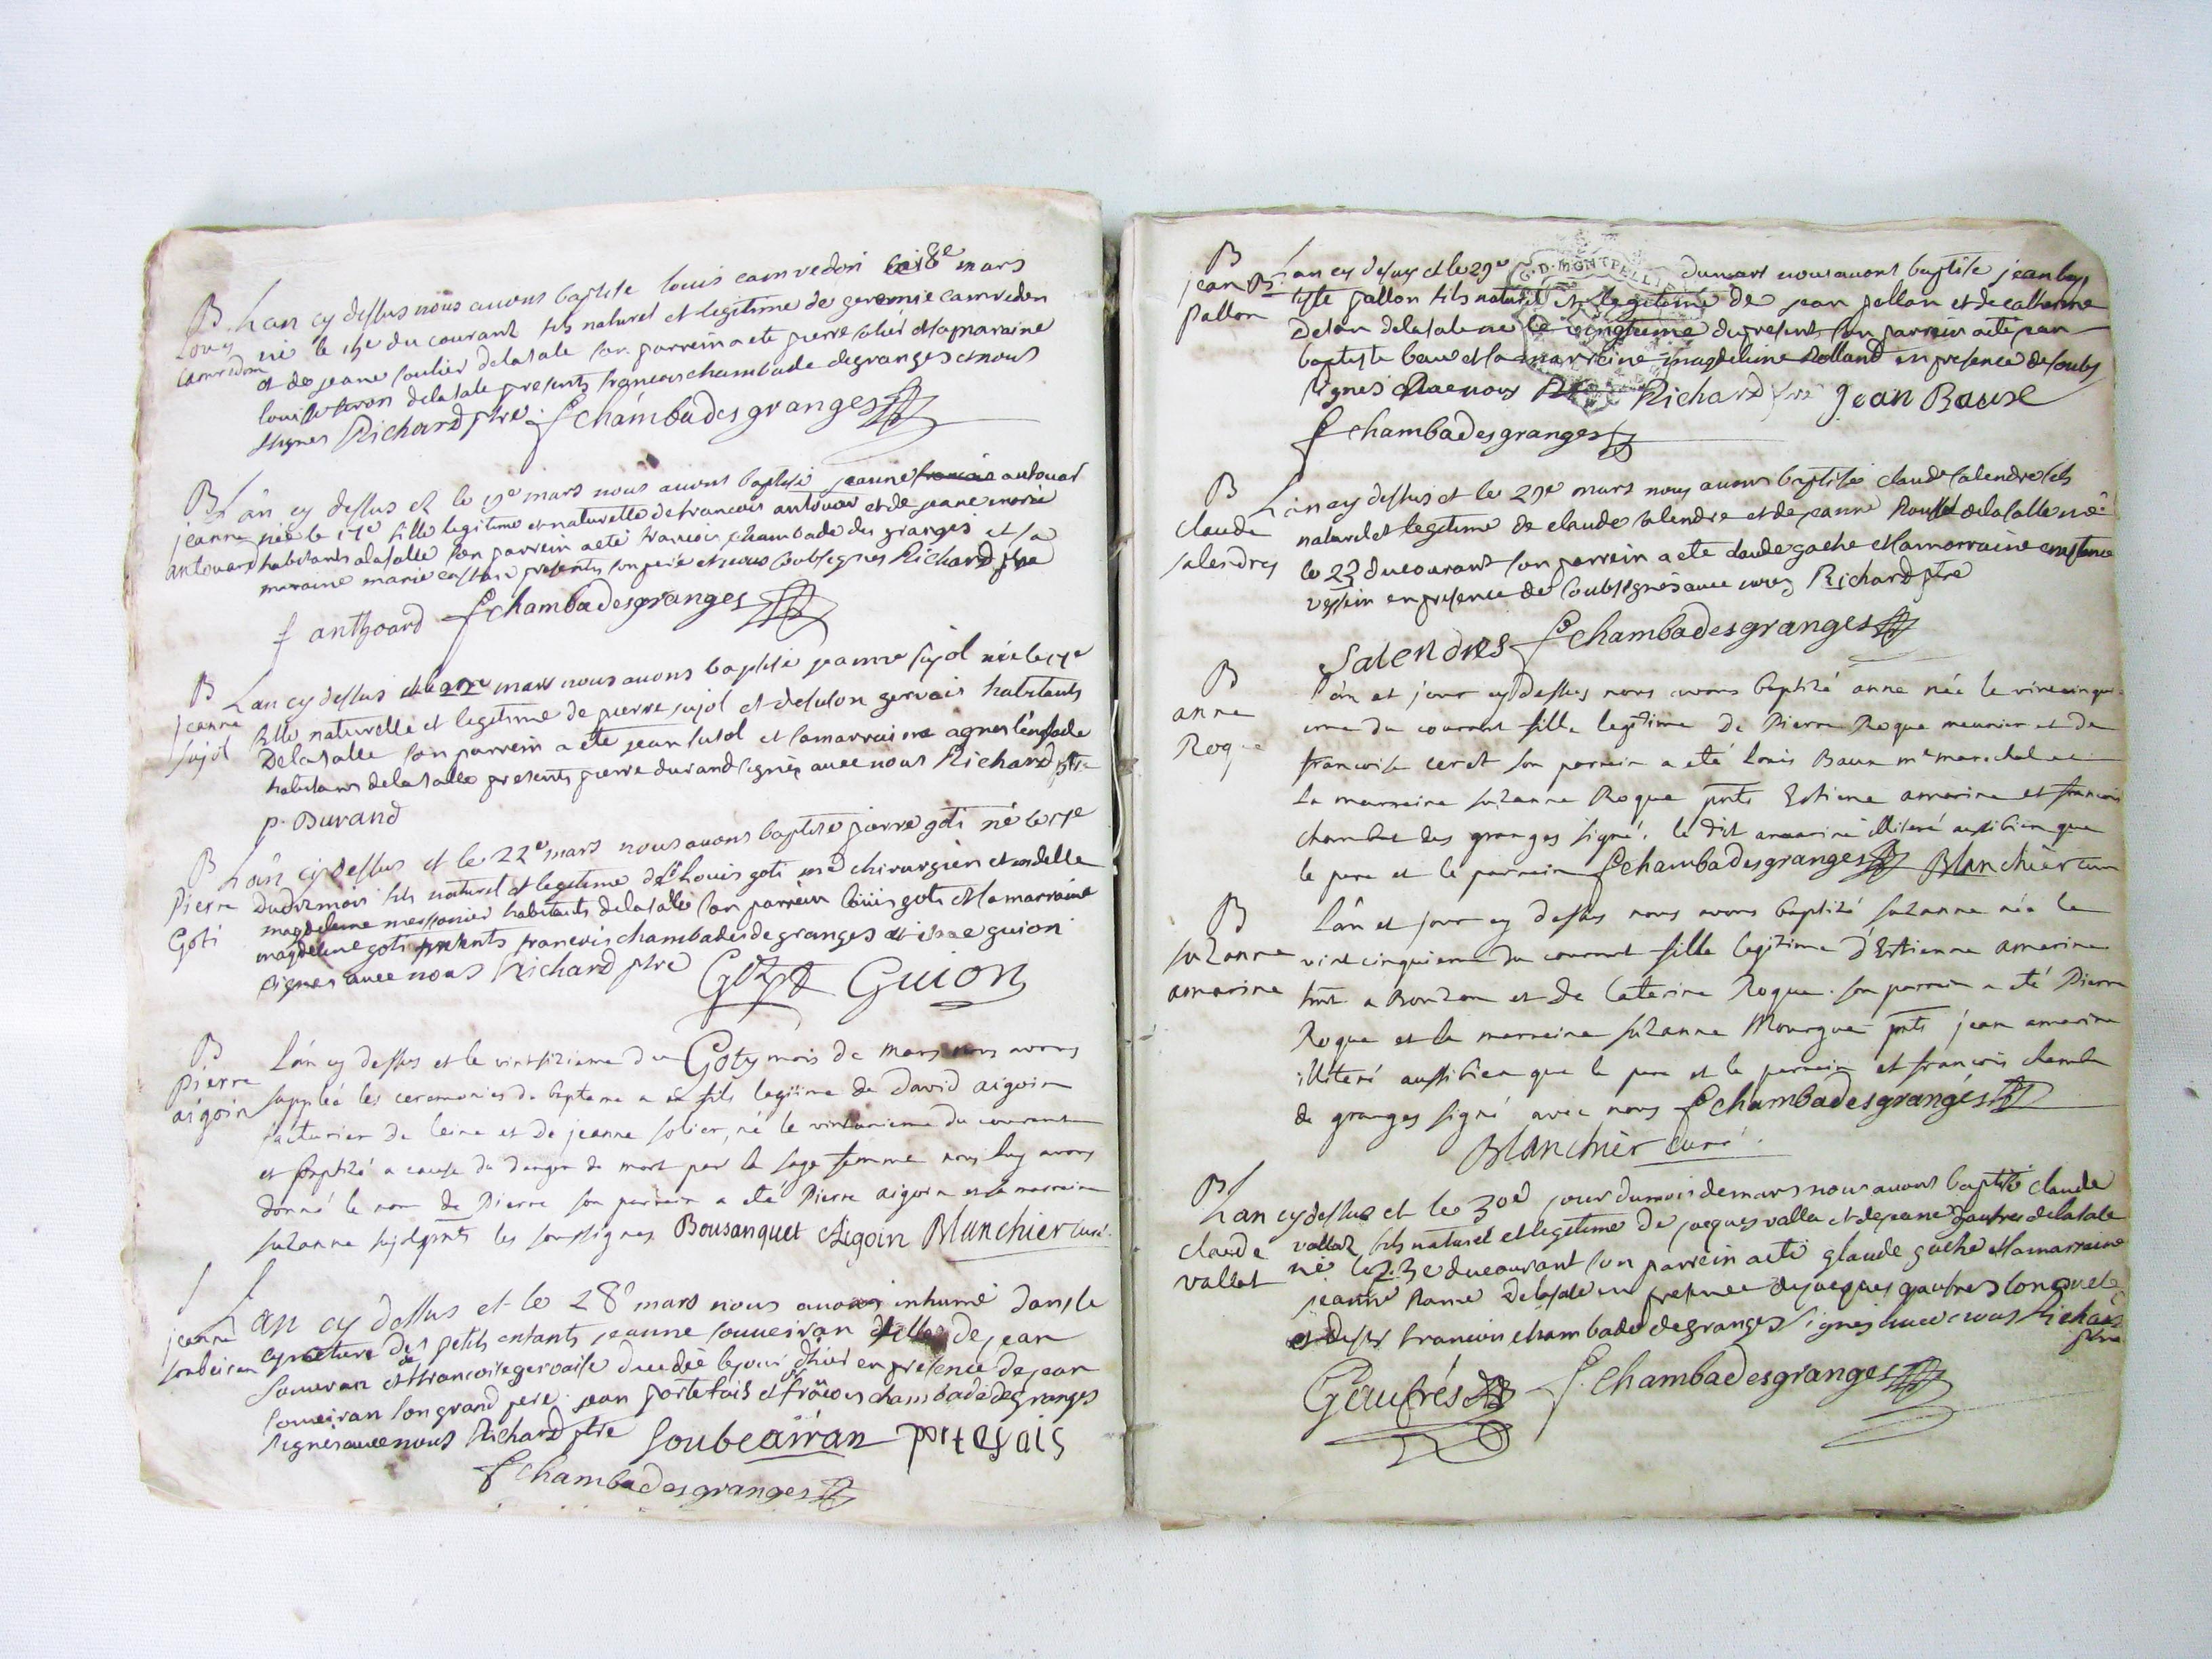 B
Louys
Camredon
Lan cy dessus nous auons baptise louis camredon le 18e mars
né le 15e du courant fils naturel et legitime de geremie camredon
et de jeane soulier delasale son parrein a ete pierre solié et sa maraine
louise seron delasale presents francois chambade degranges et nous
signes Richard ptre f chambadesgranges
B
jeanne
antouard
Lân cy dessus et le 19e mars nous auons baptisé jeanne antouard
née le 17e fille legitime et naturelle de francois antouar et de jeane
habitants alasalle son parrein a ete francois chambade des granges et sa
maraine marie presents son pere et nous soubsignes Richard ptre
f anthoard f chambadesgranges
B
jeanne
sujol
Lan cy dessus et le 22e mars nous auons baptisé jeanne sujol née le 17e
fille naturelle et legitime de pierre sujol et de gervais habitants
Delasalle son parrein a ete jean sujol et sa marraine agnes
habitans delasalle presents pierre durand signés auec nous Richard ptre
p. Durand
B
Pierre
Goti
Lân cy dessus et le 22e mars nous auons baptisé pierre goti né le 17e
dudit mois fils naturel et legitime de sr Louis goti me chirurgien et de
magdeleine messonier habitants delasalle son parrein louis goti et sa marraine
magdelene goti presents francois chambade degranges et isaac guion
signes auec nous Richard ptre Goty Guion
Goty
B
Pierre
aigoin
L'ân cy dessus et le vintsizieme du mois de mars nous avons
suppleé les ceremonies du bapteme a un fils legitime de David aigoin
facturier de leine et de jeanne solier, né le du courant
et baptizé a cause du danger de mort par la sage femme nous luy avons
donné le nom de Pierre son parrein a eté Pierre aigoin et la marreine
suzanne sujol pnts les soussignes Bousanquet Aigoin Blanchier curé.
jeanne
soubeiran
Lan cy dessus et le 28e mars nous auons inhumé dans le
cymetiere des petits enfants jeanne souueiran fille de jean
souueran et de francoise gervaise decedée le jour d'hier en presence de jean
souueiran son grand pere jean portefais et francois chambade degranges
signés auec nous Richard ptre Soubeairan portefais
f chambadesgranges
B
jean Bte
Pallon
Lan cy dessus et le 29e du mars nous auons baptise jean bap
tiste pallon fils naturel et legitime de jean pallon et de catherine
delasale né le vingtieme du present son parrein a eté jean
baptiste baue et sa marreine magdeleine Rolland en presence de soubs
signes auec nous Richard ptre Jean Bause
f chambadesgranges
G.D. MONTPELLIER
B
claude
salendres
Lân cy dessus et le 29e mars nous auons baptisé claude salendre fils
naturel et legitime de claude salendre et de jeanne delasalle né
le 23 du courant son parrein a ete claude gache et sa marraine
en presence de soubsignés auec nous Richard ptre
Salendres f chambadesgranges
B
anne
Roque
l'ân et jour cy dessus nous avons baptizé anne née le vintcinqui
eme du courant fille legitime De Pierre Roque meunier et de
francoise son parrein a eté louis Baux me marechal et
la marreine suzanne Roque pnts Estiene amarine et francois
chambe des granges signé, le dit amarine illiteré aussibien que
le pere et le parrein f chambadesgranges Blanchier curé
B
suzanne
amarine
l'ân et jour cy dessus nous avons baptizé suzanne née le
vintcinquieme du courant fille legitime d'Estienne amarine
et de Caterine Roque. son parrein a eté Pierre
Roque et la marreine suzanne Mourgue pnts jean amarine
illiteré aussibien que le pere et le parrein et francois chambe
de granges signé avec nous f chambadesgranges
Blanchier curé.
B
claude
vallat
Lan cy dessus et le 30e jour du mois de mars nous auons baptisé claude
vallat fils naturel et legitime de jacques valla et de jeane gautres delasale
né le 23e du courant son parrein a eté glaude gache et sa marraine
jeanne delasale en presence de jacques gaufres
et de sr francois chambade degranges signés auec nous Richard
ptre
Gaufrés f. chambadesgranges